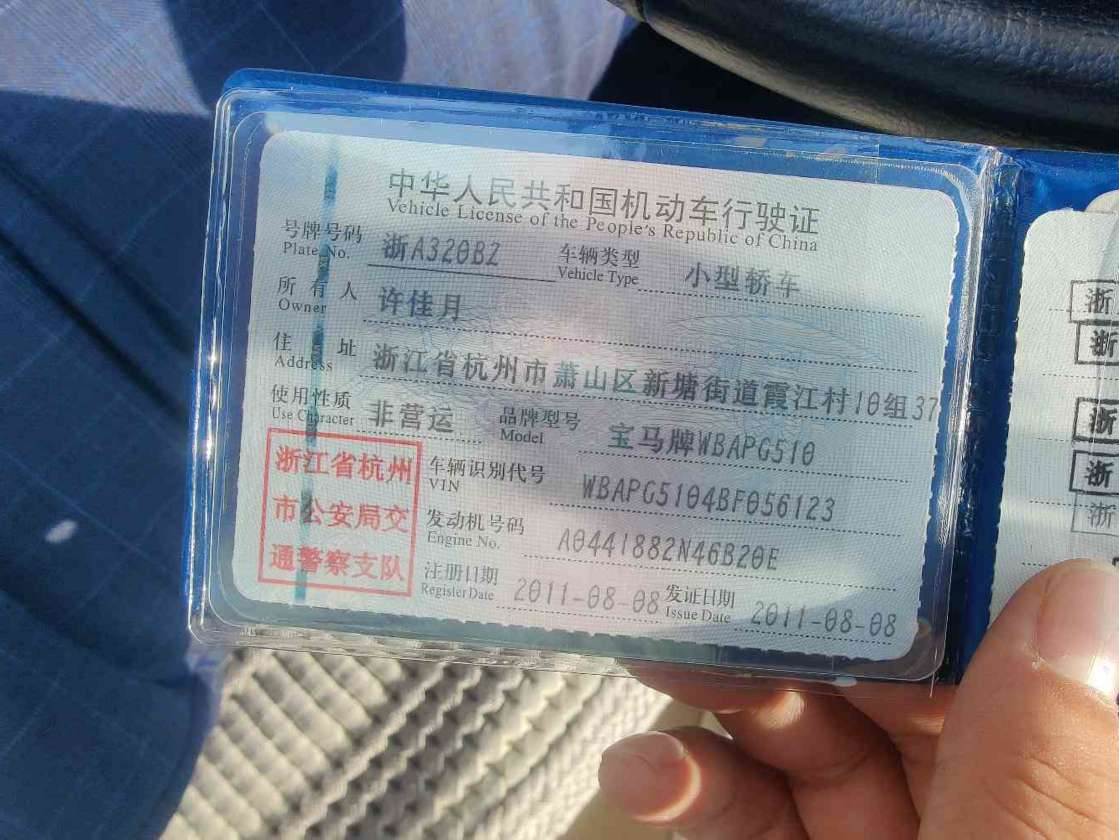 中华人民共和国机动车行驶证
Vehicle License of the People's Republic of China
号牌号码 浙A320BZ 车辆类型 小型轿车
Plate No. Vehicle Type
所有人 许佳月
Owner
住址 浙江省杭州市萧山区新塘街道霞江村10组37
Address
使用性质 非营运 品牌型号 宝马牌WBAPG510
Use Character Model
浙江省杭州
市公安局交
通警察支队
车辆识别代号 WBAPG5104BF056123
VIN
发动机号码 A0441882N46B20E
Engine No.
注册日期 2011-08-08 发证日期 2011-08-08
Register Date Issue Date
浙
浙
浙
浙
浙